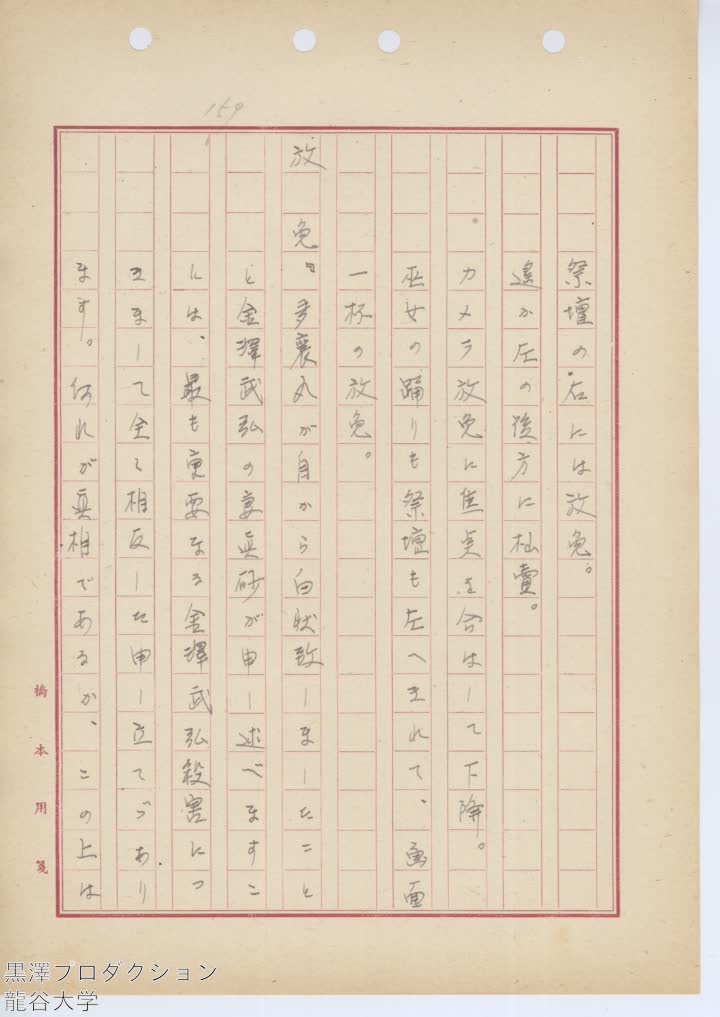 159
祭壇の右には放免。
遙か左の後方に杣賣。
カメラ放免に焦点を合はして下降。
巫女の踊りも祭壇も左へきれて、画面
一杯の放免。
放免「多襄丸が自から白状致しましたこと
と金澤武弘の妻真砂が申し述べますこ
とには、最も重要なる金澤武弘殺害につ
きまして全く相反した申し立てゞあり
ます。何れが真相であるか、この上は
橋本用箋
黒澤プロダクション
龍谷大学